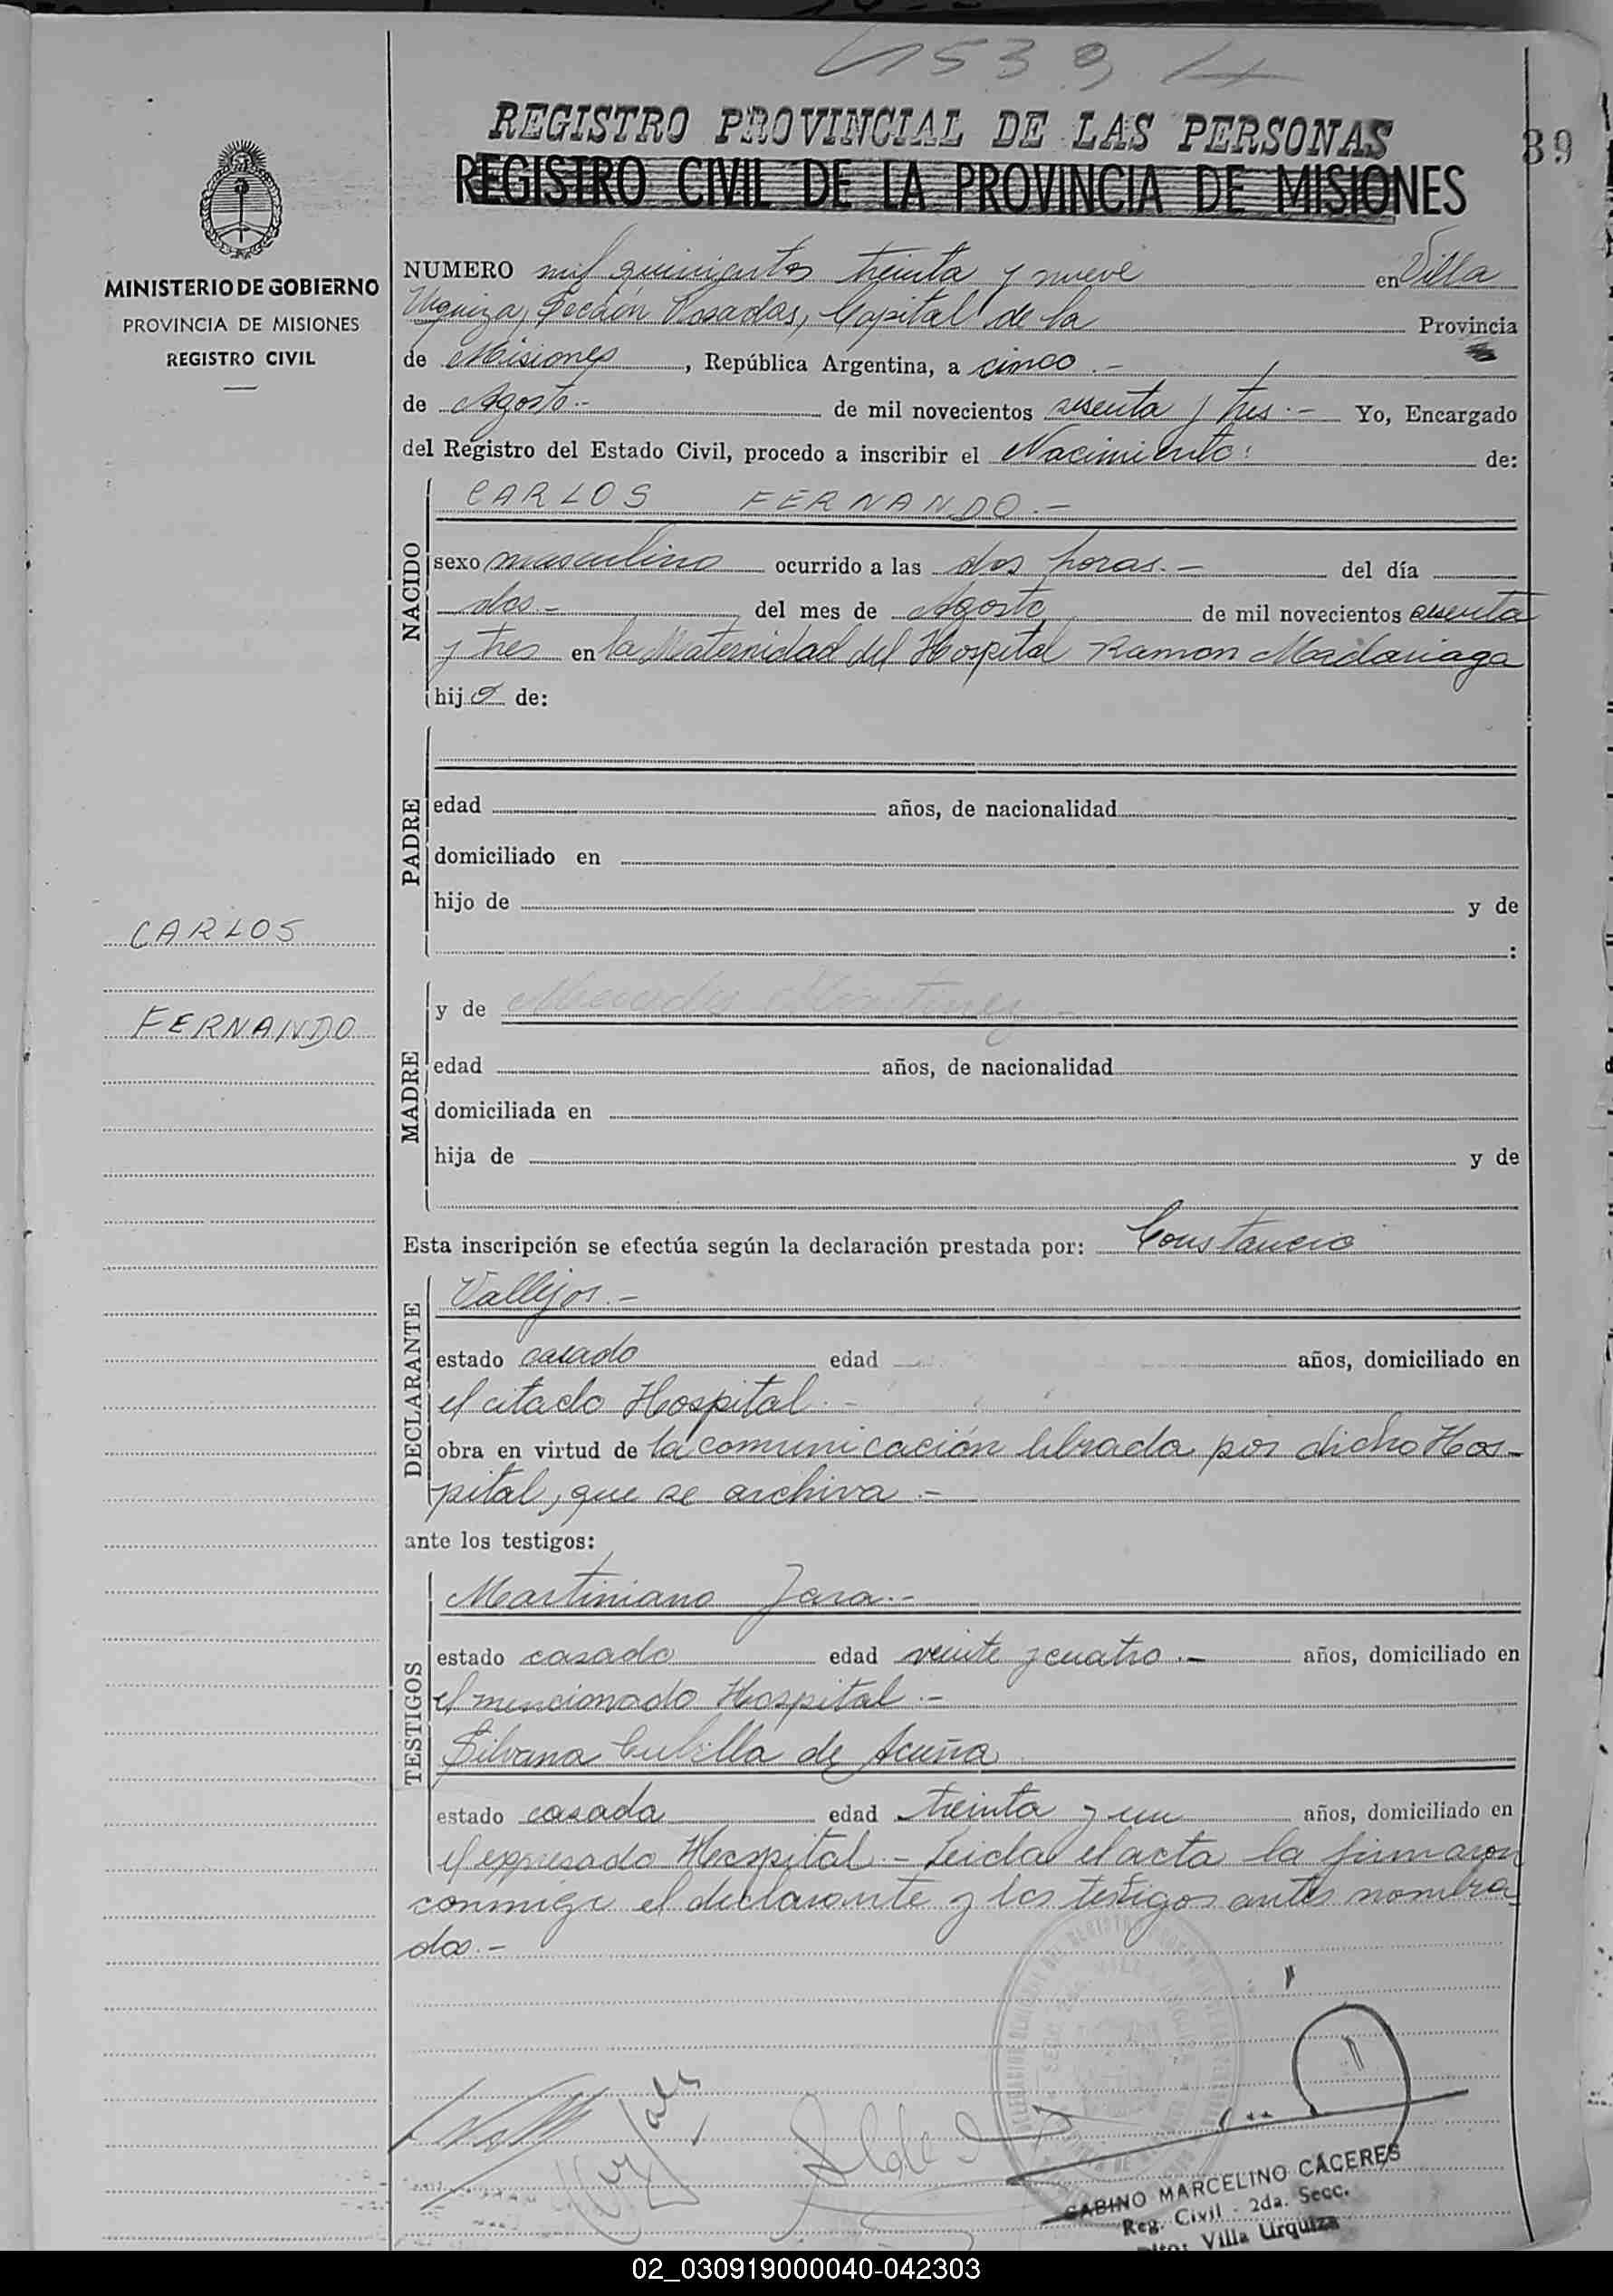 1539
REGISTRO PROVINCIAL DE LAS PERSONAS
39
REGISTRO CIVIL DE LA PROVINCIA DE MISIONES
MINISTERIO DE GOBIERNO
PROVINCIA DE MISIONES
REGISTRO CIVIL
NUMERO mil quinientos treinta y nueve en Villa
Urquiza, Sección Posadas, Capital de la Provincia
de Misiones, República Argentina, a cinco.-
de Agosto.- de mil novecientos sesenta y tres.- Yo, Encargado
del Registro del Estado Civil, procedo a inscribir el Nacimiento: de:
NACIDO
CARLOS FERNANDO.-
sexo masculino ocurrido a las dos horas.- del día
dos.- del mes de Agosto de mil novecientos sesenta
y tres en la Maternidad del Hospital Ramon Madariaga
hijo de:
PADRE
edad años, de nacionalidad
domiciliado en
hijo de y de
:
CARLOS
FERNANDO
MADRE
y de Mercedes Martinez.-
edad años, de nacionalidad
domiciliada en
hija de y de
Esta inscripción se efectúa según la declaración prestada por: Constancio
DECLARANTE
Vallejos.-
estado casado edad años, domiciliado en
el citado Hospital.-
obra en virtud de la comunicación librada por dicho Hos-
pital, que se archiva.-
ante los testigos:
TESTIGOS
Martiniano Jara.-
estado casado edad veinte y cuatro.- años, domiciliado en
el mencionado Hospital.-
Silvana Cubilla de Acuña
estado casada edad treinta y un años, domiciliado en
el expresado Hospital.- Leida el acta la firmaron
conmigo el declarante y los testigos antes nombra-
dos.-
SABINO MARCELINO CACERES
Reg. Civil - 2da. Secc.
Villa Urquiza
02_030919000040-042303